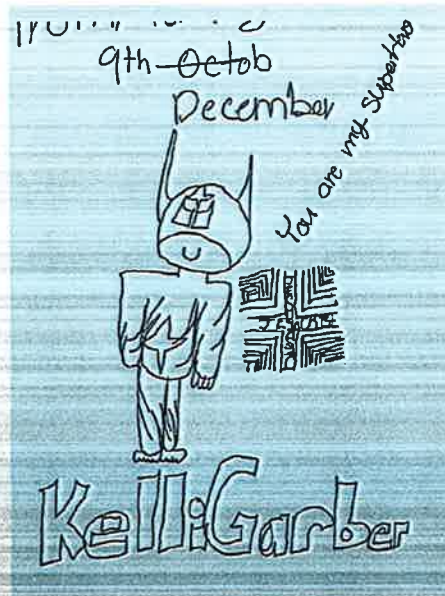 9th Octob
December
You are my superhero
KelliGarber